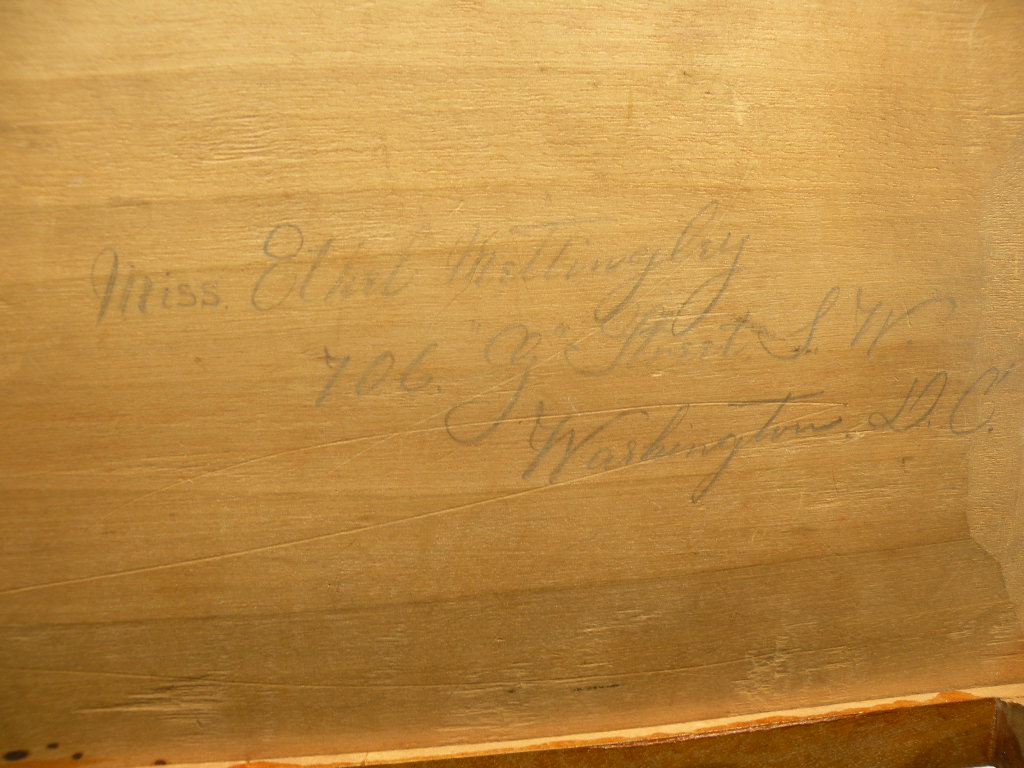 Miss. Ethel Mettingley
706. "G" Street. S. W.
Washington. D. C.